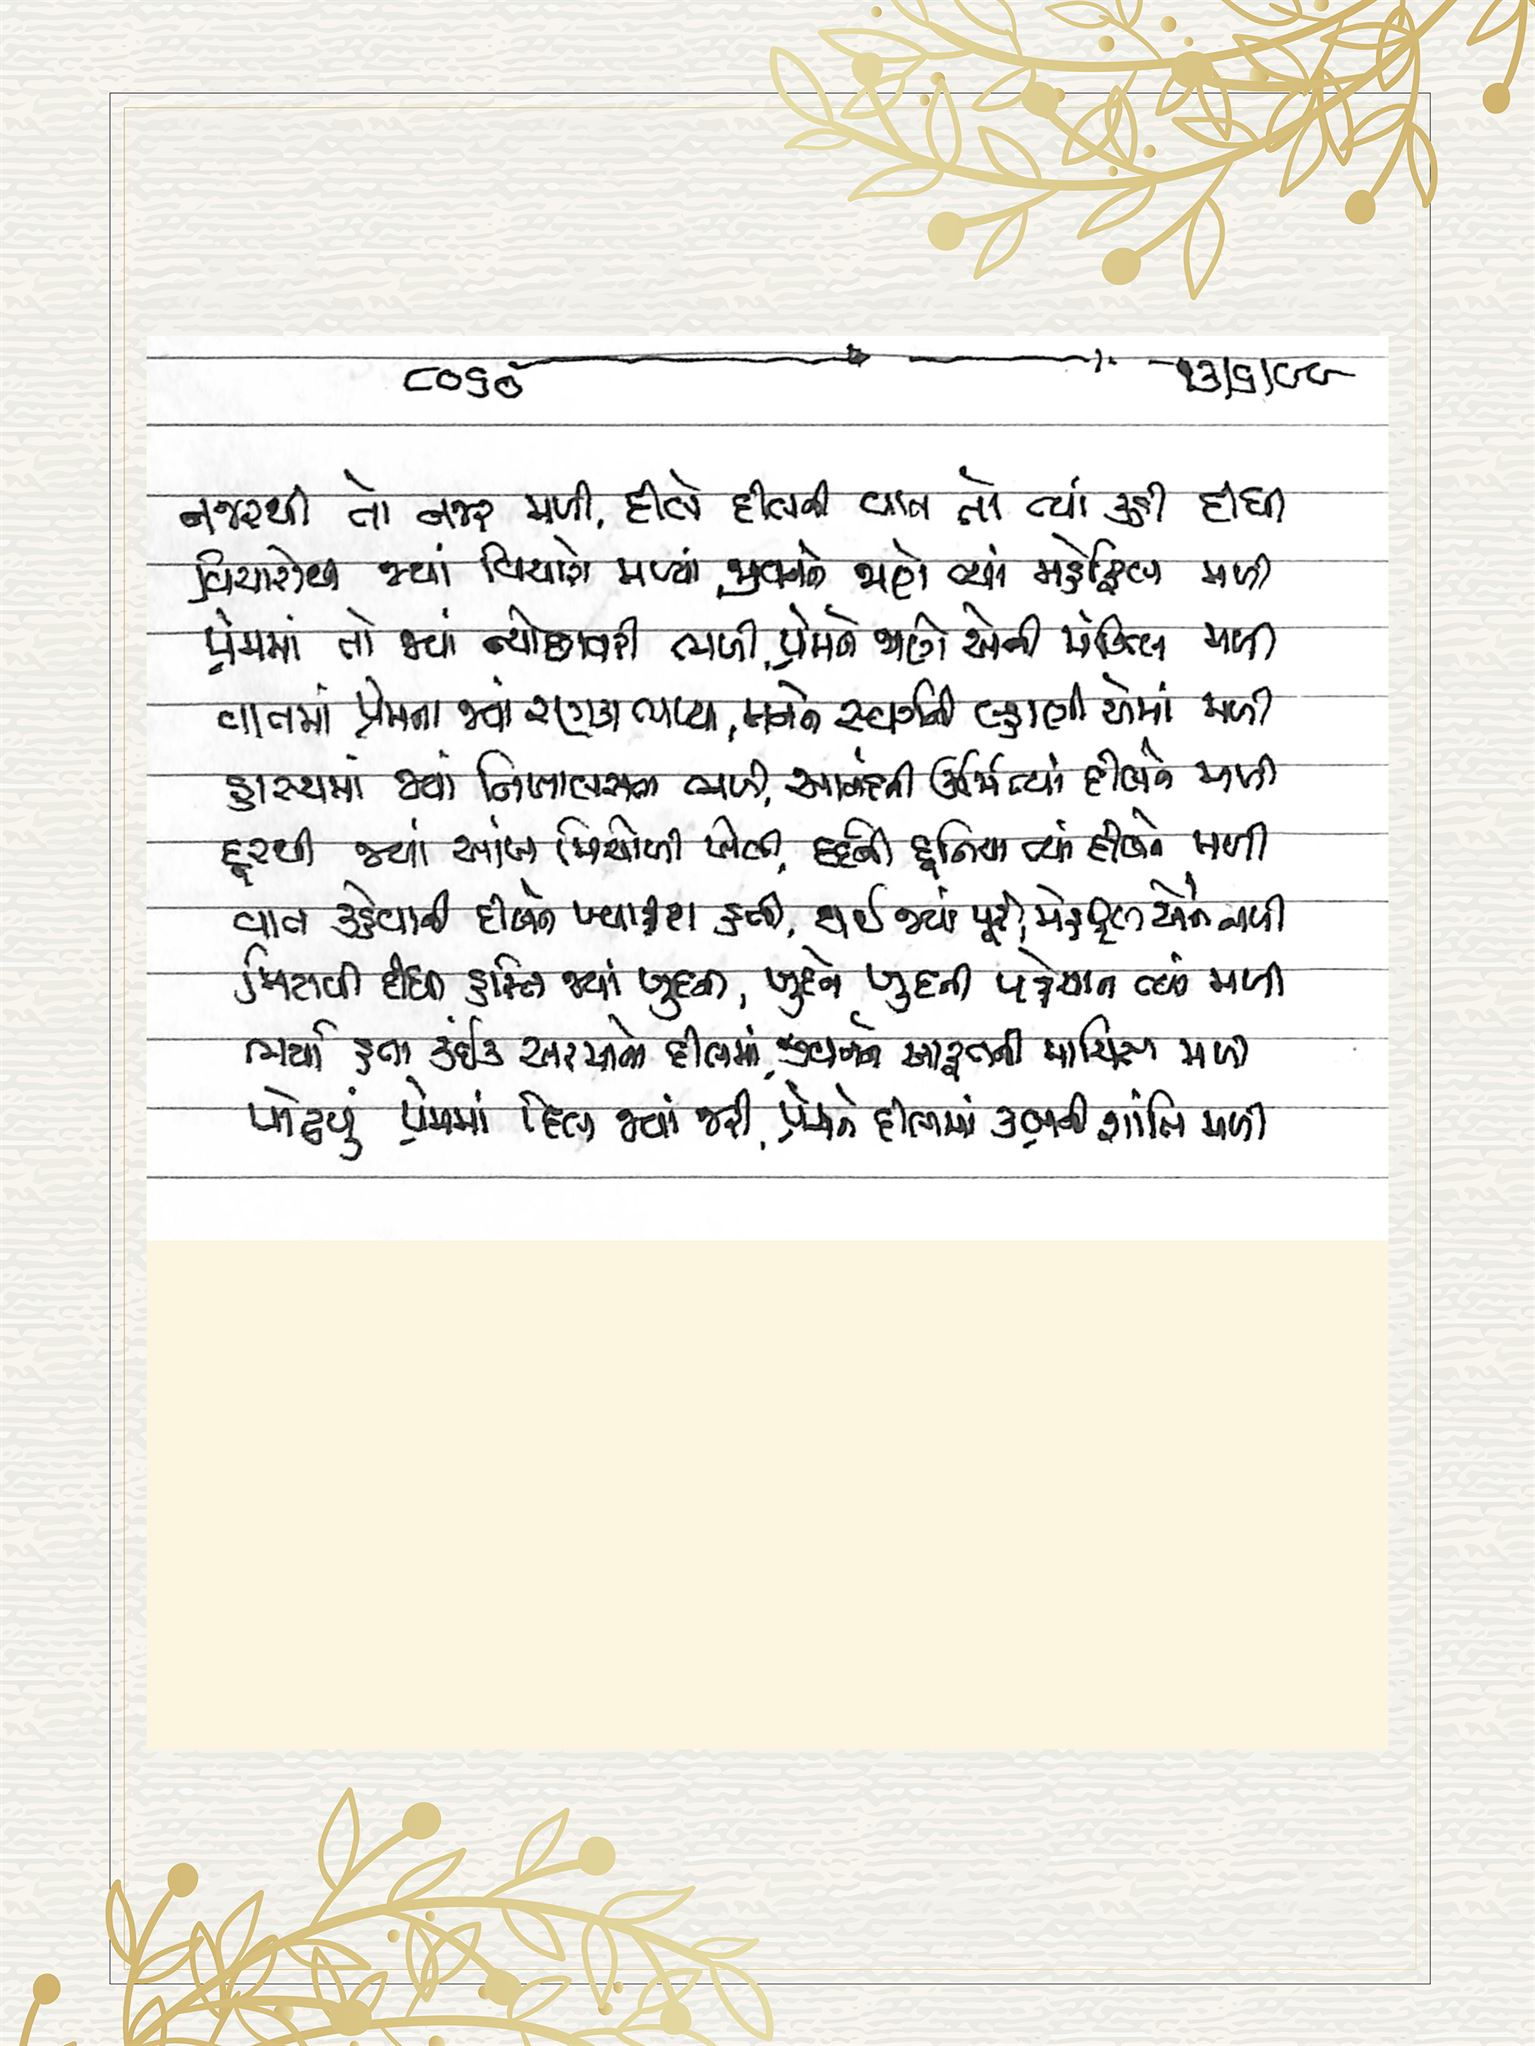 ૮૦૬૭ ૧૩/૬/૯૯
નજરથી તો નજર મળી, દીલે દીલની વાત તો ત્યાં કહી દીધી
વિચારોથી જ્યાં વિચારો મળ્યાં, જીવનને જાણે ત્યાં મહેફિલ મળી
પ્રેમમાં તો જ્યાં ન્યોછાવરી ભળી, પ્રેમને જાણે એની મંઝિલ મળી
વાતમાં પ્રેમના જ્યાં રણકા ભળ્યા, મનને સ્વર્ગની લહાણી એમાં મળી
હાસ્યમાં જ્યાં નિખાલસતા ભળી, આનંદની ઊર્મિ ત્યાં દીલને મળી
દૂરથી જ્યાં આંખ મિચોળી ખેલી, દર્દની દુનિયા ત્યાં દીલને મળી
વાત કહેવાની દીલને ખ્વાહિશ હતી, થઈ જ્યાં પૂરી, મહેફિલ એને મળી
મિટાવી દીધી હસ્તિ જ્યાં ખુદની, ખુદને ખુદની પહેચાન ત્યાં મળી
ભર્યા હતા કંઈક અરમાનો દીલમાં, જીવનને આફતની મારચિસ મળી
પોઢયું પ્રેમમાં દિલ જ્યાં જરી, પ્રેમને દીલમાં કબ્રની શાંતિ મળી